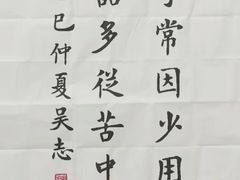 常因少用
品多從苦中
巳仲夏吴志